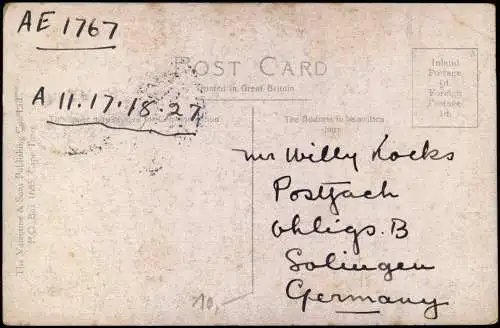 AE 1767
POST CARD
Printed in Great Britain
A 11.17.18.27
The Address to be written
here
Inland
Postage
½d
Foreign
Postage
1d.
The Valentine & Sons Publishing Co., Ltd.
P.O. Box 1685, Cape Town
Mr Willy Kocks
Postfach
Ohligs. B
Solingen
Germany
10,-